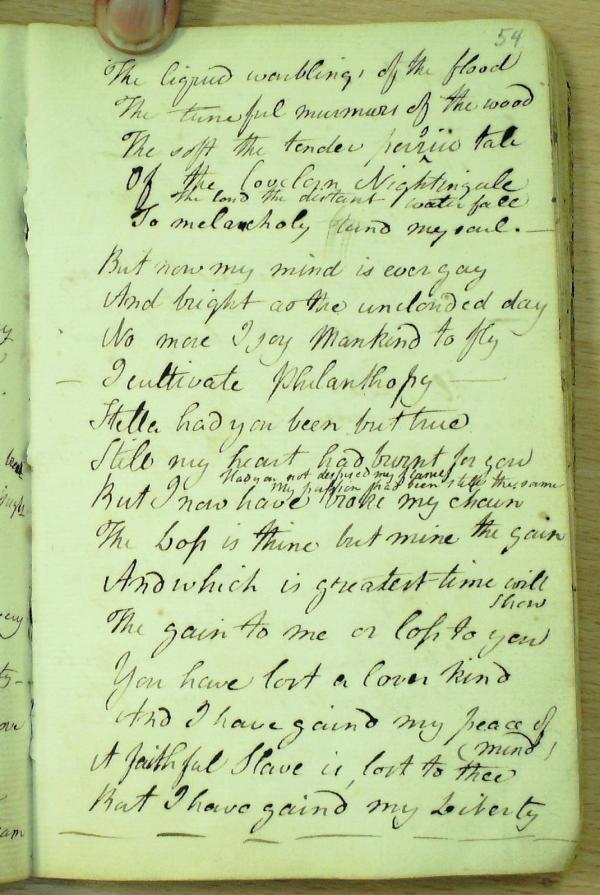 54
The liquid warblings of the flood
The tuneful murmurs of the wood
The soft the tender tale
Of the Lovelorn Nightingale
The loud the distant water fall
To melancholy tund my soul. —
But now my mind is ever gay
And bright as the unclouded day
No more I joy Mankind to fly
— I cultivate Philanthopy —
Stella had you been but true
Still my heart had burnt for you
Had you not despised my flame
My passion had been still the same
But I now have broke my chain
The Loss is thine but mine the gain
And which is greatest time will
show
The gain to me or loss to you
You have lost a lover kind
And I have gaind my peace of
(mind)
A faithful Slave is lost to thee
But I have gaind my Liberty